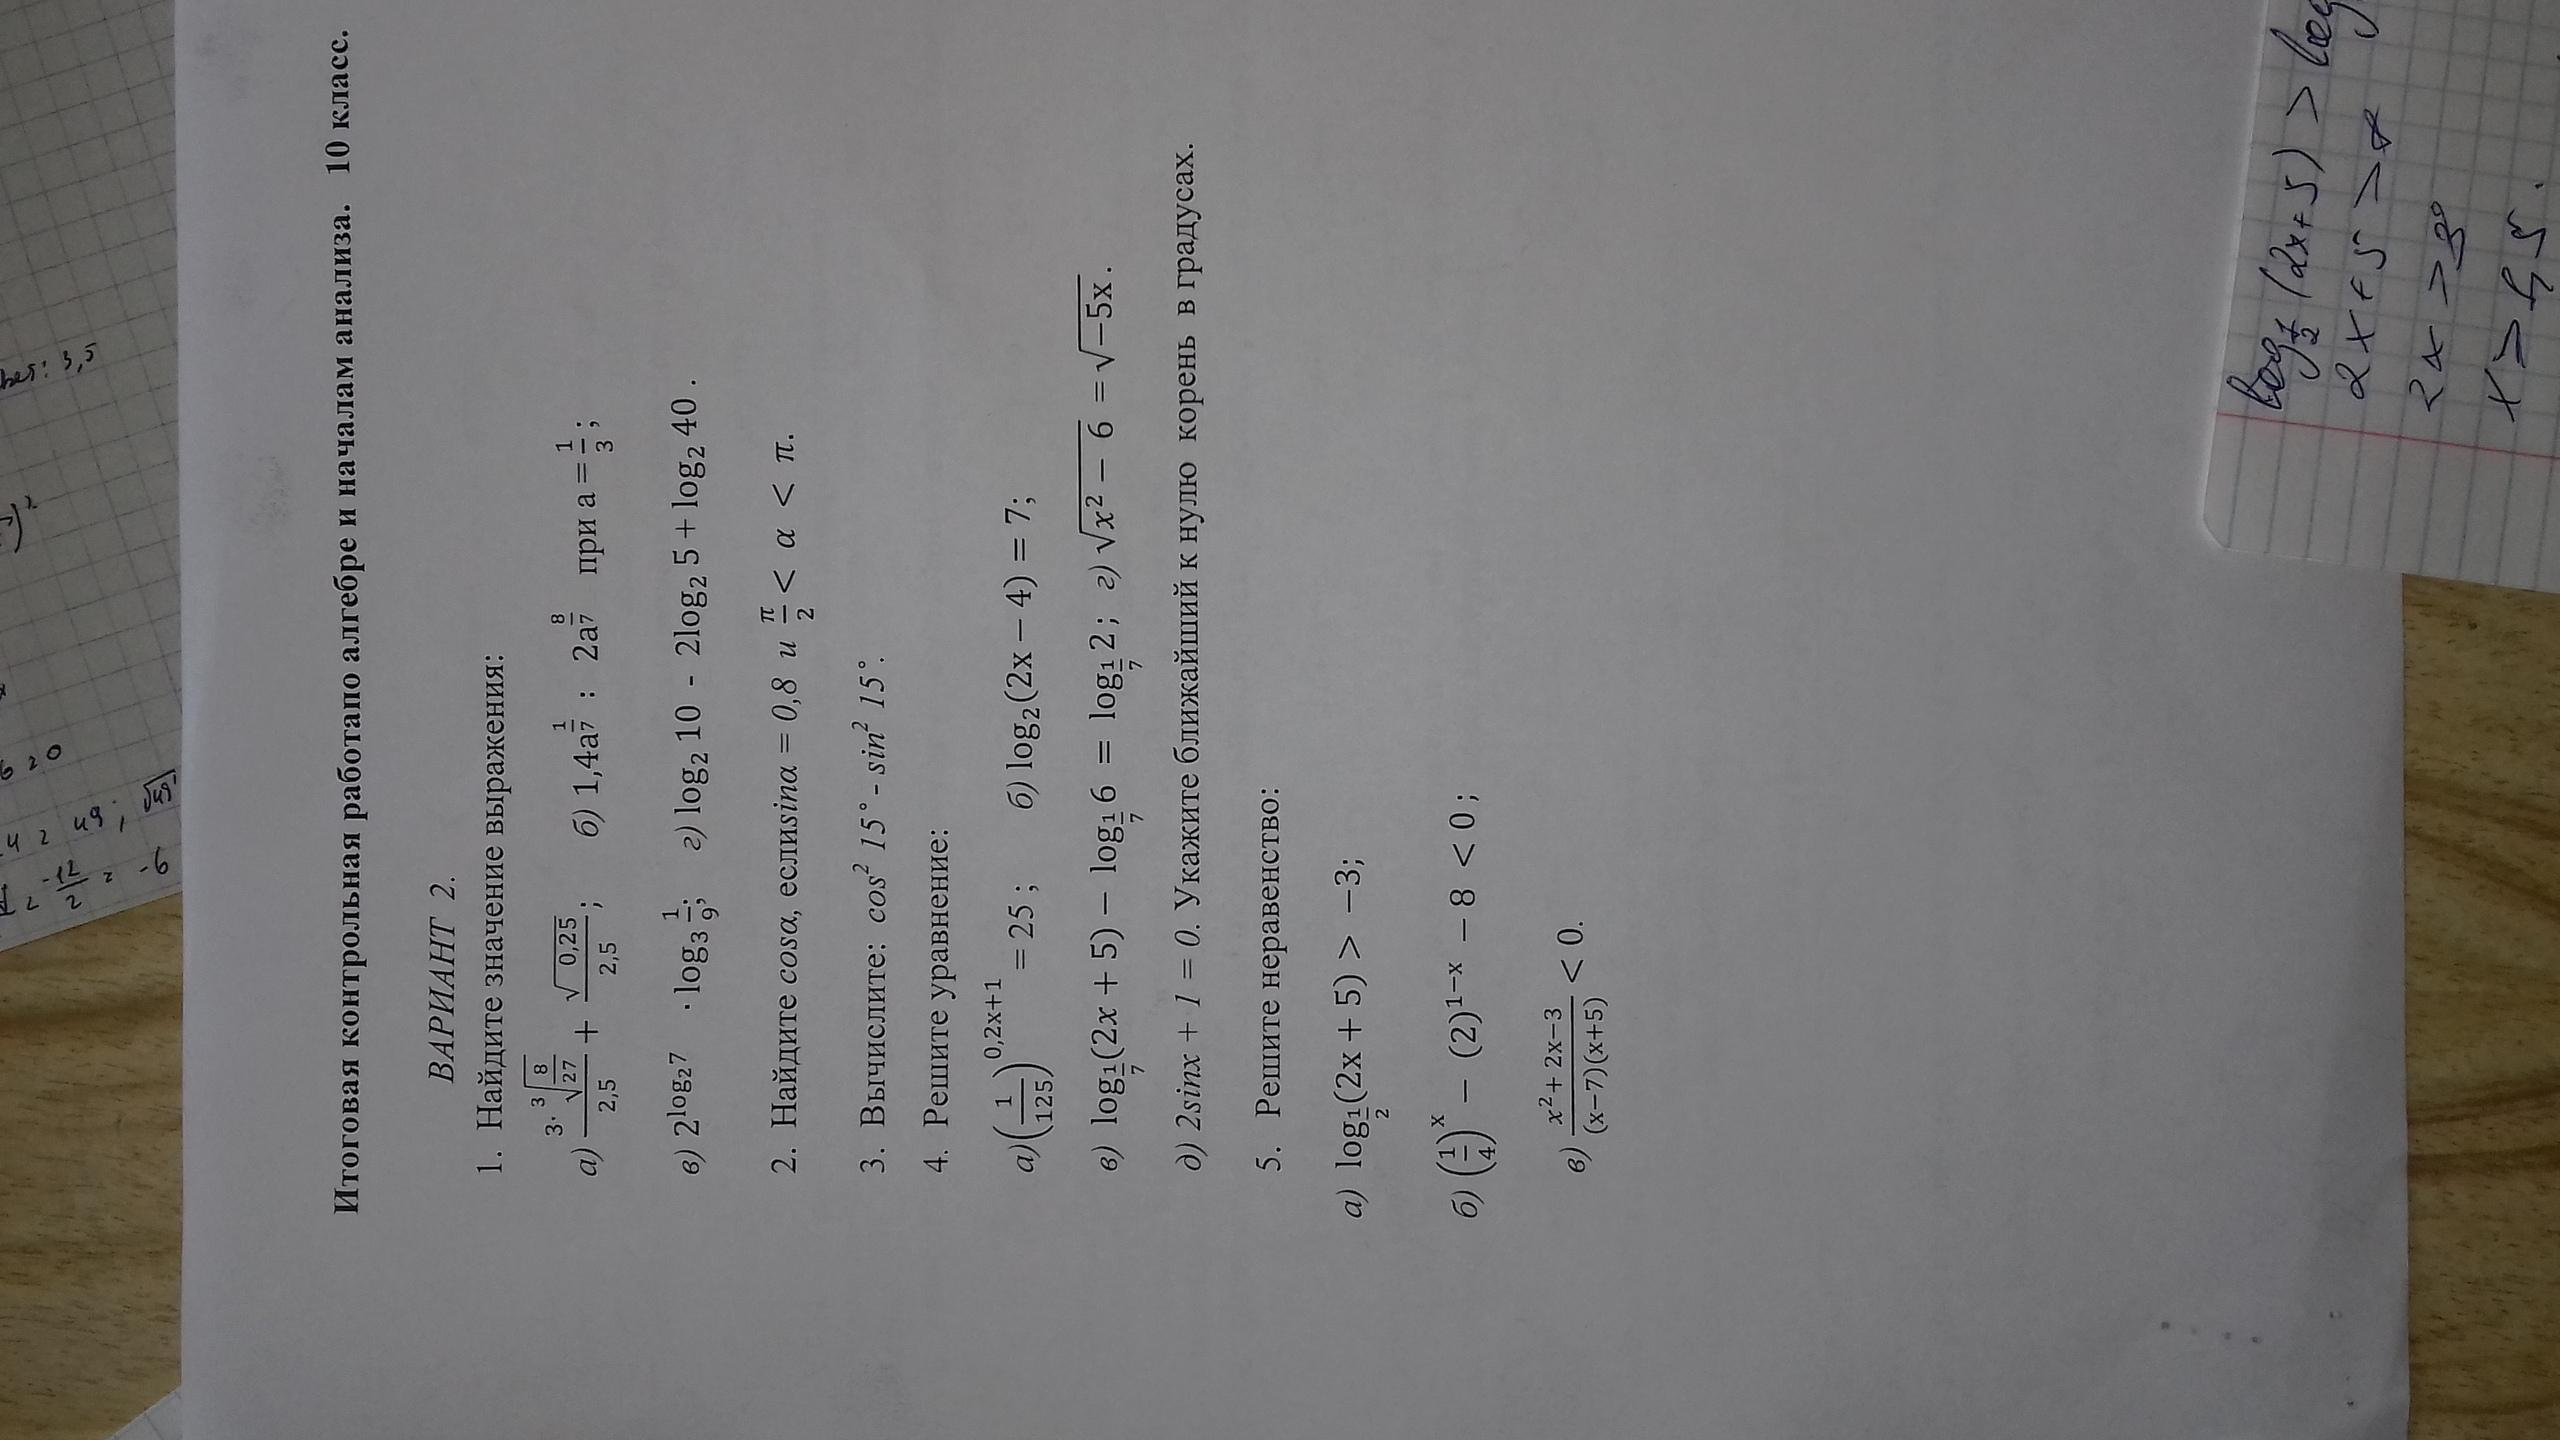 Итоговая контрольная работапо алгебре и началам анализа. 10 класс.
ВАРИАНТ 2.
1. Найдите значение выражения:
а) (3·∛(8/27))/2,5 + √0,25/2,5 ; б) 1,4а^(1/7) : 2а^(8/7) при а = 1/3 ;
в) 2^(log₂7) · log₃ 1/9; г) log₂ 10 - 2log₂ 5 + log₂ 40 .
2. Найдите cosα, еслиsinα = 0,8 и π/2 < α < π.
3. Вычислите: cos² 15° - sin² 15°.
4. Решите уравнение:
а)(1/125)^(0,2x+1) = 25 ; б) log₂(2x − 4) = 7;
в) log_(1/7)(2x + 5) − log_(1/7) 6 = log_(1/7) 2 ; г) √(x² − 6) = √(−5x) .
д) 2sinx + 1 = 0. Укажите ближайший к нулю корень в градусах.
5. Решите неравенство:
а) log_(1/2)(2x + 5) > −3;
б) (1/4)^x − (2)^(1−x) − 8 < 0 ;
в) (x² + 2x−3)/((x−7)(x+5)) < 0.
log_(1/2) (2x+5) > log
2x+5 >
2x > 3
x >
: 3,5
-12/2 = -6